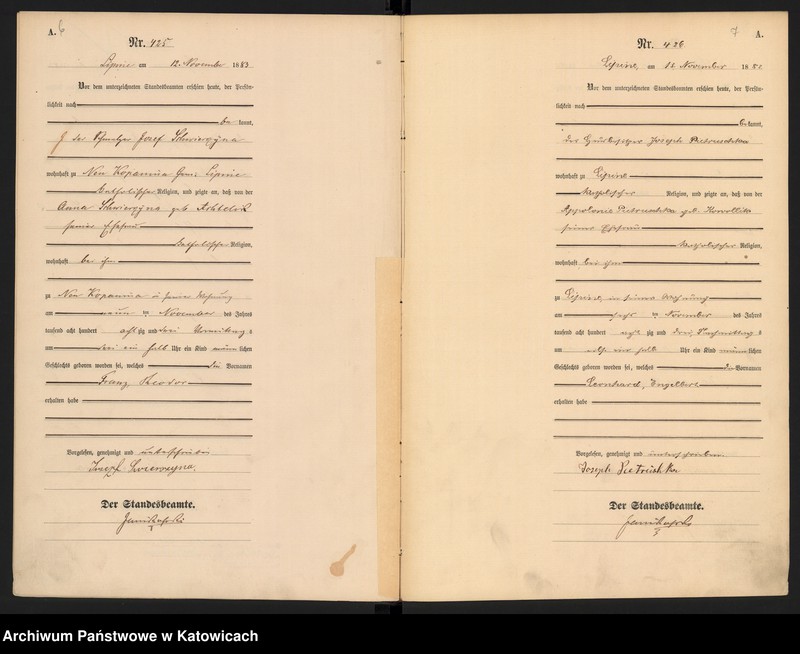 A. 6
Nr. 425
Lipine am 12 November 1883
Vor dem unterzeichneten Standesbeamten erschien heute, der Persön-
lichkeit nach
be kannt,
der Josef Schwierzyna
wohnhaft zu Neu Kopanina Lipine
katholischer Religion, und zeigte an, daß von der
Anna Schwierzyna geb
seiner Ehefrau
katholischer Religion,
wohnhaft bei ihm
zu Neu Kopanina in seiner Wohnung
am neun ten November des Jahres
tausend acht hundert acht zig und drei Vormittags
um drei ein halb Uhr ein Kind männlichen
Geschlechts geboren worden sei, welches die Vornamen
Franz Teodor
erhalten habe
Vorgelesen, genehmigt und unterschrieben
Josef Swierzyna.
Der Standesbeamte.
7 A.
Nr. 426
Lipine, am November 188
Vor dem unterzeichneten Standesbeamten erschien heute, der Persön-
lichkeit nach
be kannt,
der Joseph Pietruschka
wohnhaft zu Lipine
katholischer Religion, und zeigte an, daß von der
Appolonie Pietruschka geb.
seiner Ehefrau
katholischer Religion,
wohnhaft bei ihm
zu Lipine, in seiner Wohnung
am ten November des Jahres
tausend acht hundert acht zig und drei, Nachmittags
um halb Uhr ein Kind männlichen
Geschlechts geboren worden sei, welches die Vornamen
Leonhard, Engelbert
erhalten habe
Vorgelesen, genehmigt und unterschrieben
Joseph Pietruschka
Der Standesbeamte.
Archiwum Państwowe w Katowicach